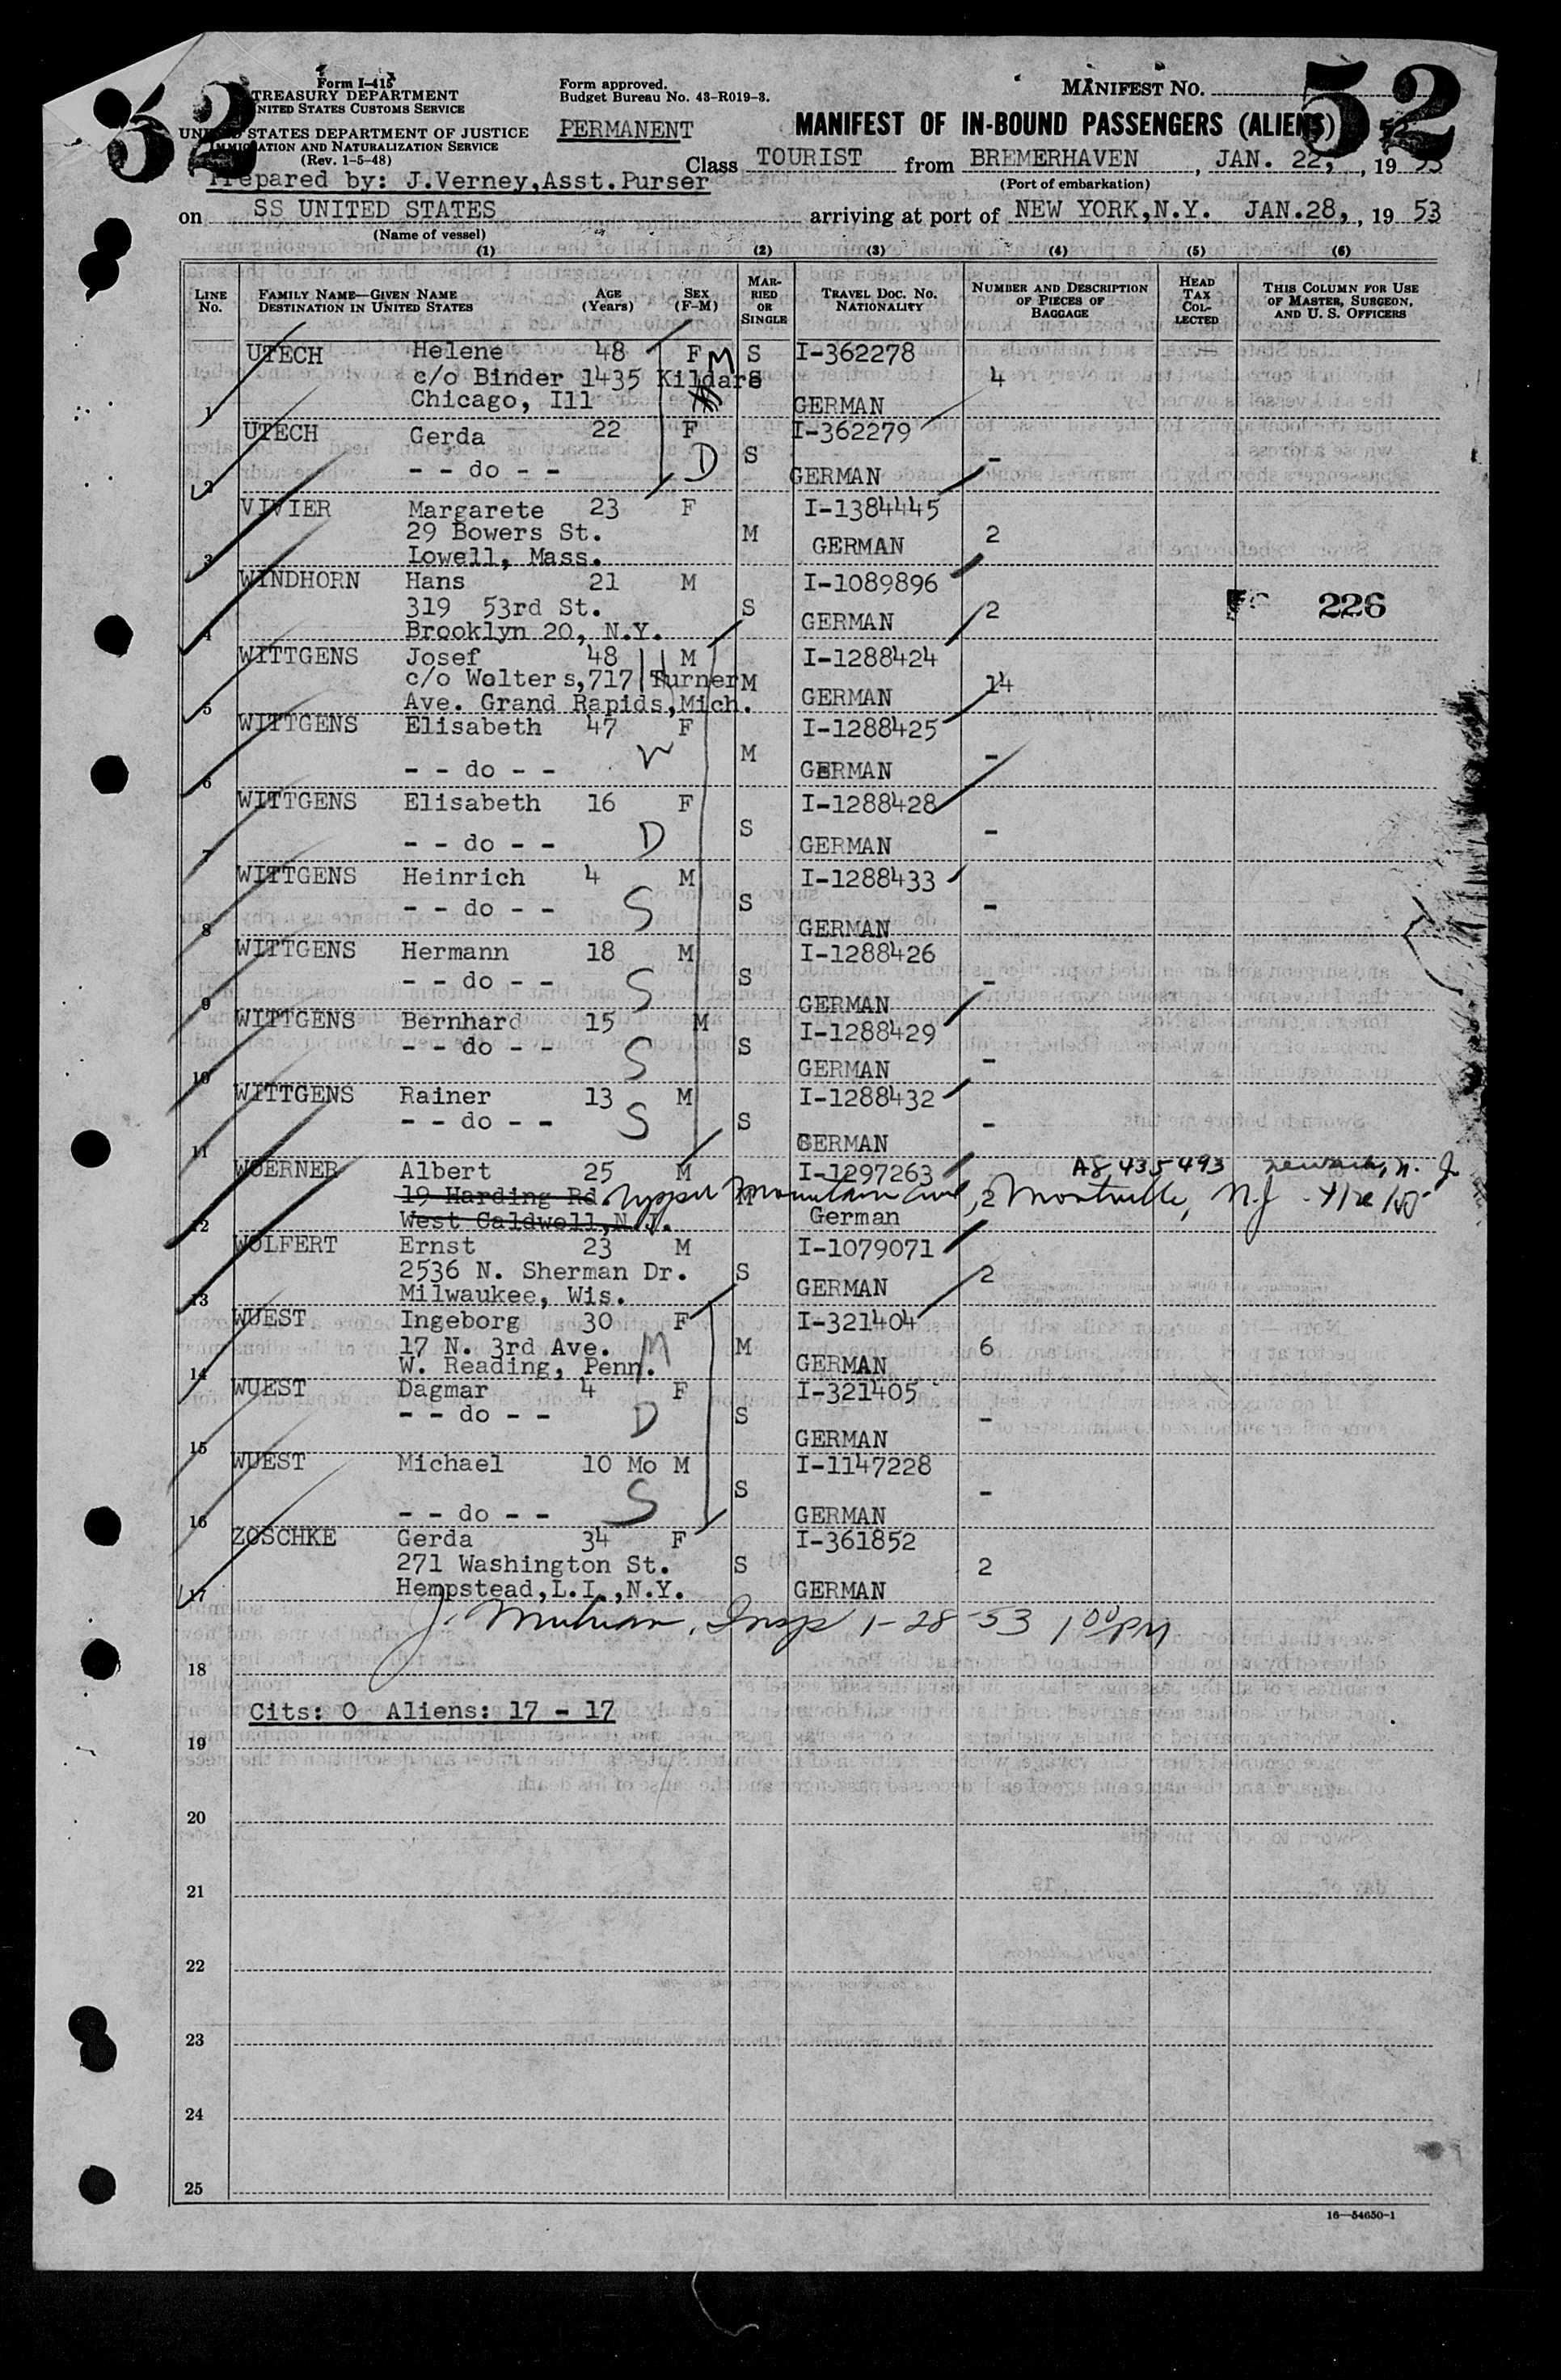 52
52
Form I-415
TREASURY DEPARTMENT
UNITED STATES CUSTOMS SERVICE
UNITED STATES DEPARTMENT OF JUSTICE
IMMIGRATION AND NATURALIZATION SERVICE
(Rev. 1-5-48)
Form approved.
Budget Bureau No. 43-R019-3.
PERMANENT
MANIFEST NO.
MANIFEST OF IN-BOUND PASSENGERS (ALIENS)
Class TOURIST from BREMERHAVEN, JAN. 22, , 19 53
(Port of embarkation)
Prepared by: J.Verney,Asst.Purser
on SS UNITED STATES arriving at port of NEW YORK,N.Y. JAN.28, , 19 53
(Name of vessel)
(1) (2) (3) (4) (5) (6)
LINE No. FAMILY NAME—GIVEN NAME DESTINATION IN UNITED STATES AGE (Years) SEX (F-M) MARRIED OR SINGLE TRAVEL DOC. NO. NATIONALITY NUMBER AND DESCRIPTION OF PIECES OF BAGGAGE HEAD TAX COLLECTED THIS COLUMN FOR USE OF MASTER, SURGEON, AND U. S. OFFICERS
UTECH Helene 48 F M S I-362278
c/o Binder 1435 Kildare S 4
1 Chicago, Ill GERMAN
UTECH Gerda 22 F I-362279
D S
2 - - do - - GERMAN -
VIVIER Margarete 23 F I-1384445
29 Bowers St. M GERMAN 2
3 Lowell, Mass.
WINDHORN Hans 21 M I-1089896
319 53rd St. S GERMAN 2 226
4 Brooklyn 20, N.Y.
WITTGENS Josef 48 M I-1288424
c/o Wolters,717 Turner M GERMAN 14
5 Ave. Grand Rapids,Mich.
WITTGENS Elisabeth 47 F I-1288425
W M -
6 - - do - - GERMAN
WITTGENS Elisabeth 16 F I-1288428
7 - - do - - D S GERMAN -
WITTGENS Heinrich 4 M I-1288433
8 - - do - - S S GERMAN -
WITTGENS Hermann 18 M I-1288426
9 - - do - - S S GERMAN -
WITTGENS Bernhard 15 M I-1288429
10 - - do - - S S GERMAN -
WITTGENS Rainer 13 M I-1288432
11 - - do - - S S GERMAN -
WOERNER Albert 25 M I-1297263 A8 435 493 Newark, N. J.
19 Harding Rd. Upper Mountain Ave, M 2 Montville, N.J
12 West Caldwell,N.J. German
WOLFERT Ernst 23 M I-1079071
2536 N. Sherman Dr. S GERMAN 2
13 Milwaukee, Wis.
WUEST Ingeborg 30 F I-321404
17 N. 3rd Ave. M M 6
14 W. Reading, Penn. GERMAN
WUEST Dagmar 4 F I-321405
15 - - do - - D S GERMAN -
WUEST Michael 10 Mo M I-1147228
S S -
16 - - do - - GERMAN
ZOSCHKE Gerda 34 F I-361852
271 Washington St. S 2
17 Hempstead,L.I.,N.Y. GERMAN
Insp 1-28-53 1 00 PM
18
Cits: 0 Aliens: 17 - 17
19
20
21
22
23
24
25
16—54650-1